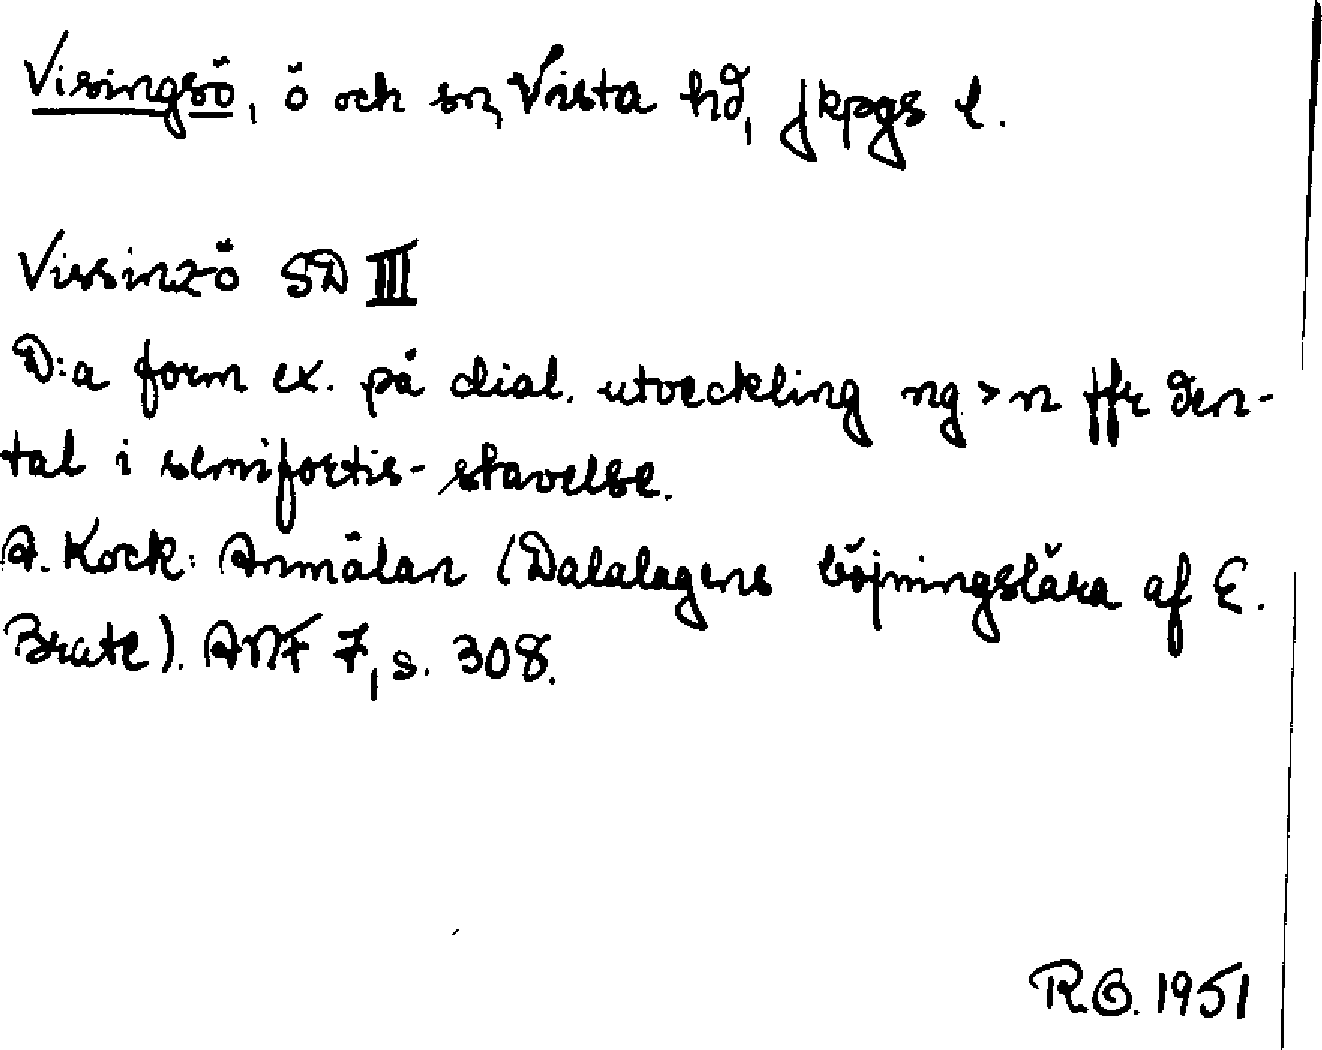 Visingsö, ö och sn, Vista hd, Jkpgs l.
Vissinzö SD III
D:a form ex. på dial. utveckling ng > n ffr den-
tal i semifortis-stavelse.
A. Kock: Anmälan (Dalalagens böjningslära af E.
Brate). ANF 7, s. 308.
R.O. 1951